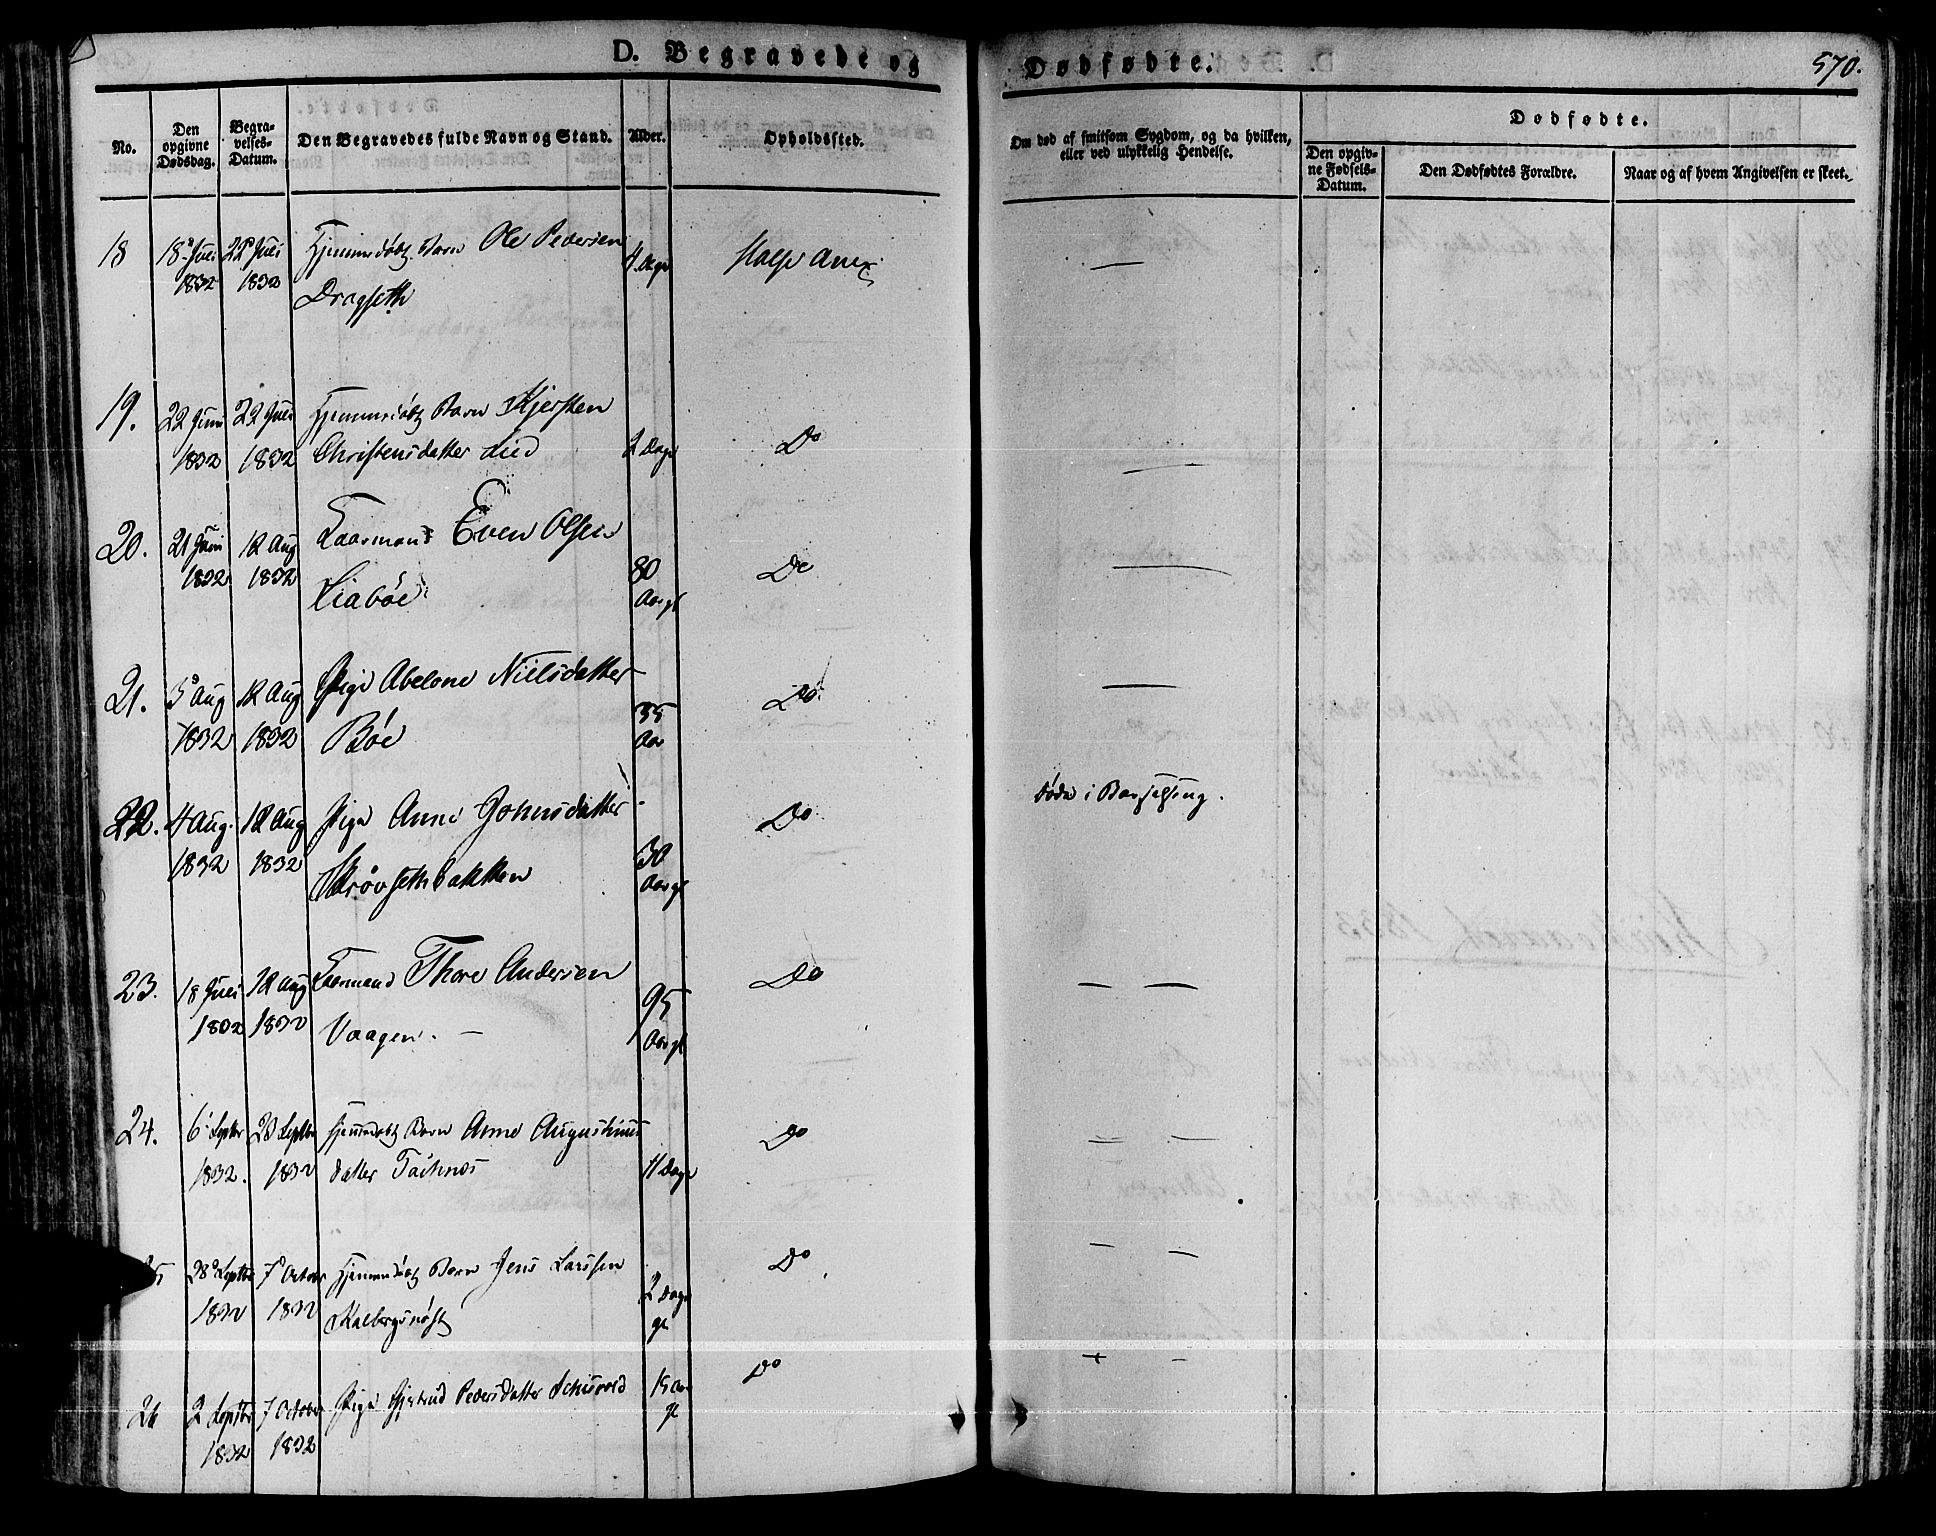 D. Begravede og Dødfødte. 570.
No.
Den opgivne Dødsdag.
Begravelses-Datum.
Den Begravedes fulde Navn og Stand.
Alder.
Opholdssted.
Om død af smitsom Sygdom, og da hvilken,
eller ved ulykkelig Hendelse.
Dødfødte.
Den opgiv-
ne Fødsels-
Datum.
Den Dødfødtes Forældre.
Naar og af hvem Angivelsen er skeet.
18 18 Juli 22 Juli Hjemmedøbt Barn Ole Pedersen 4 Dage Halse Annex —
1832 1832 Dragseth
19. 22 Juni 22 Juli Hjemmedøbt Barn Kjersten
1832 1832 Christensdatter Lied 2 Dage Do —
20. 21 Juni 12 Aug Even Olsen
1832 1832 Liabøe 80 Aargl Do —
21. 5 Aug 12 Aug Pige Abelone Nielsdatter
1832 1832 Bøe 35 Aar Do —
22. 4 Aug. 12 Aug Pige Anne Johnsdatter Do døde i Barselseng.
1832 1832 30 Aargl
23. 18 Juli 12 Aug Thore Andersen Do — —
1832 1832 Vaagen. — 95 Aargl
24. 6 Septbr 23 Septbr hjemmedøbt Barn Anne Augustinus Do — —
1832. 1832 datter 11 Dage
28 Septbr 7 October Hjemmedøbt Barn Jens Larssen Do — —
1832 1832 2 Dage gl
26 2 Septbr 7 October Pige Gjertrud Pedersdatter 15 Aar gl Do — —
1832 1832